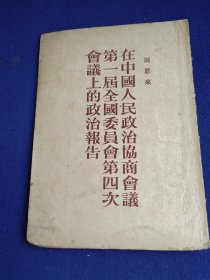 周恩來
在中國人民政治協商會議
第一屆全國委員會第四次
會議上的政治報告